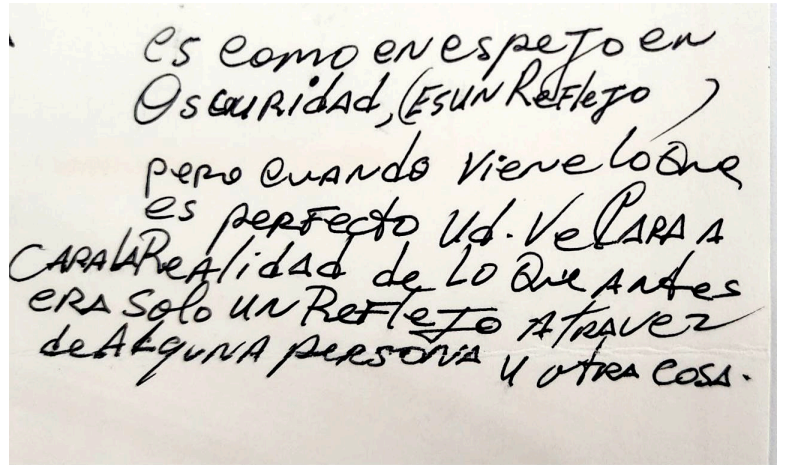 es como en espejo en
Oscuridad, (ES UN Reflejo)
pero cuando viene lo que
es perfecto Ud. Ve CARA A
CARA LA Realidad de LO Que Antes
ERA Solo UN Reflejo Atravez
de Alguna persona u otra cosa.